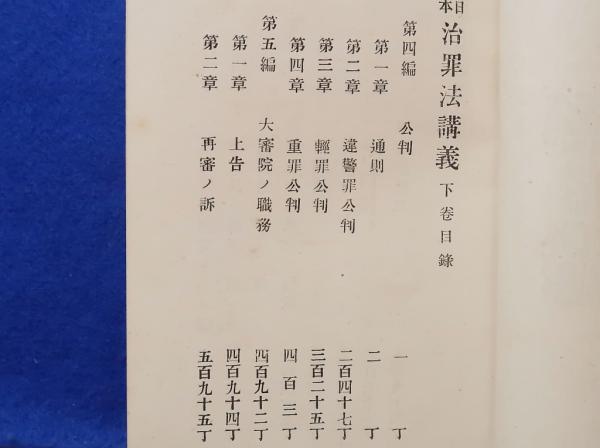 日本治罪法講義 下卷目錄
第四編 公判 一丁
第一章 通則 二丁
第二章 違警罪公判 二百四十七丁
第三章 輕罪公判 三百二十五丁
第四章 重罪公判 四百三丁
第五編 大審院ノ職務 四百九十二丁
第一章 上告 四百九十四丁
第二章 再審ノ訴 五百九十五丁